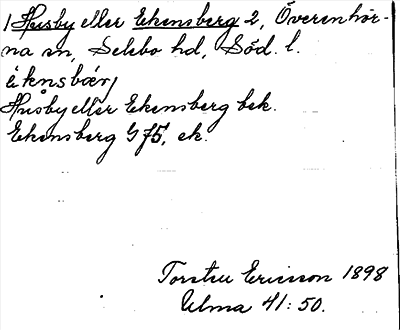 1 Husby eller Ekensberg 2, Överenhör-
na sn, Selebo hd, Söd. l.
è knsbær,
Husby eller Ekensberg bek.
Ekensberg G 75, ek.
Torsten Ericsson 1898
Ulma 41:50.